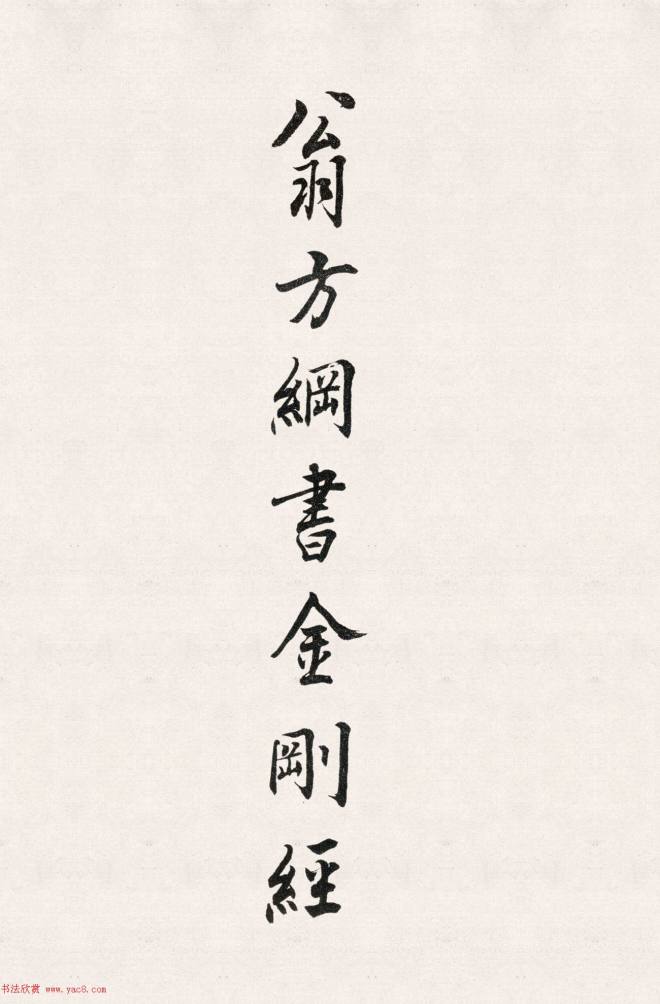 翁方綱書金剛經
书法欣赏 www.yac8.com